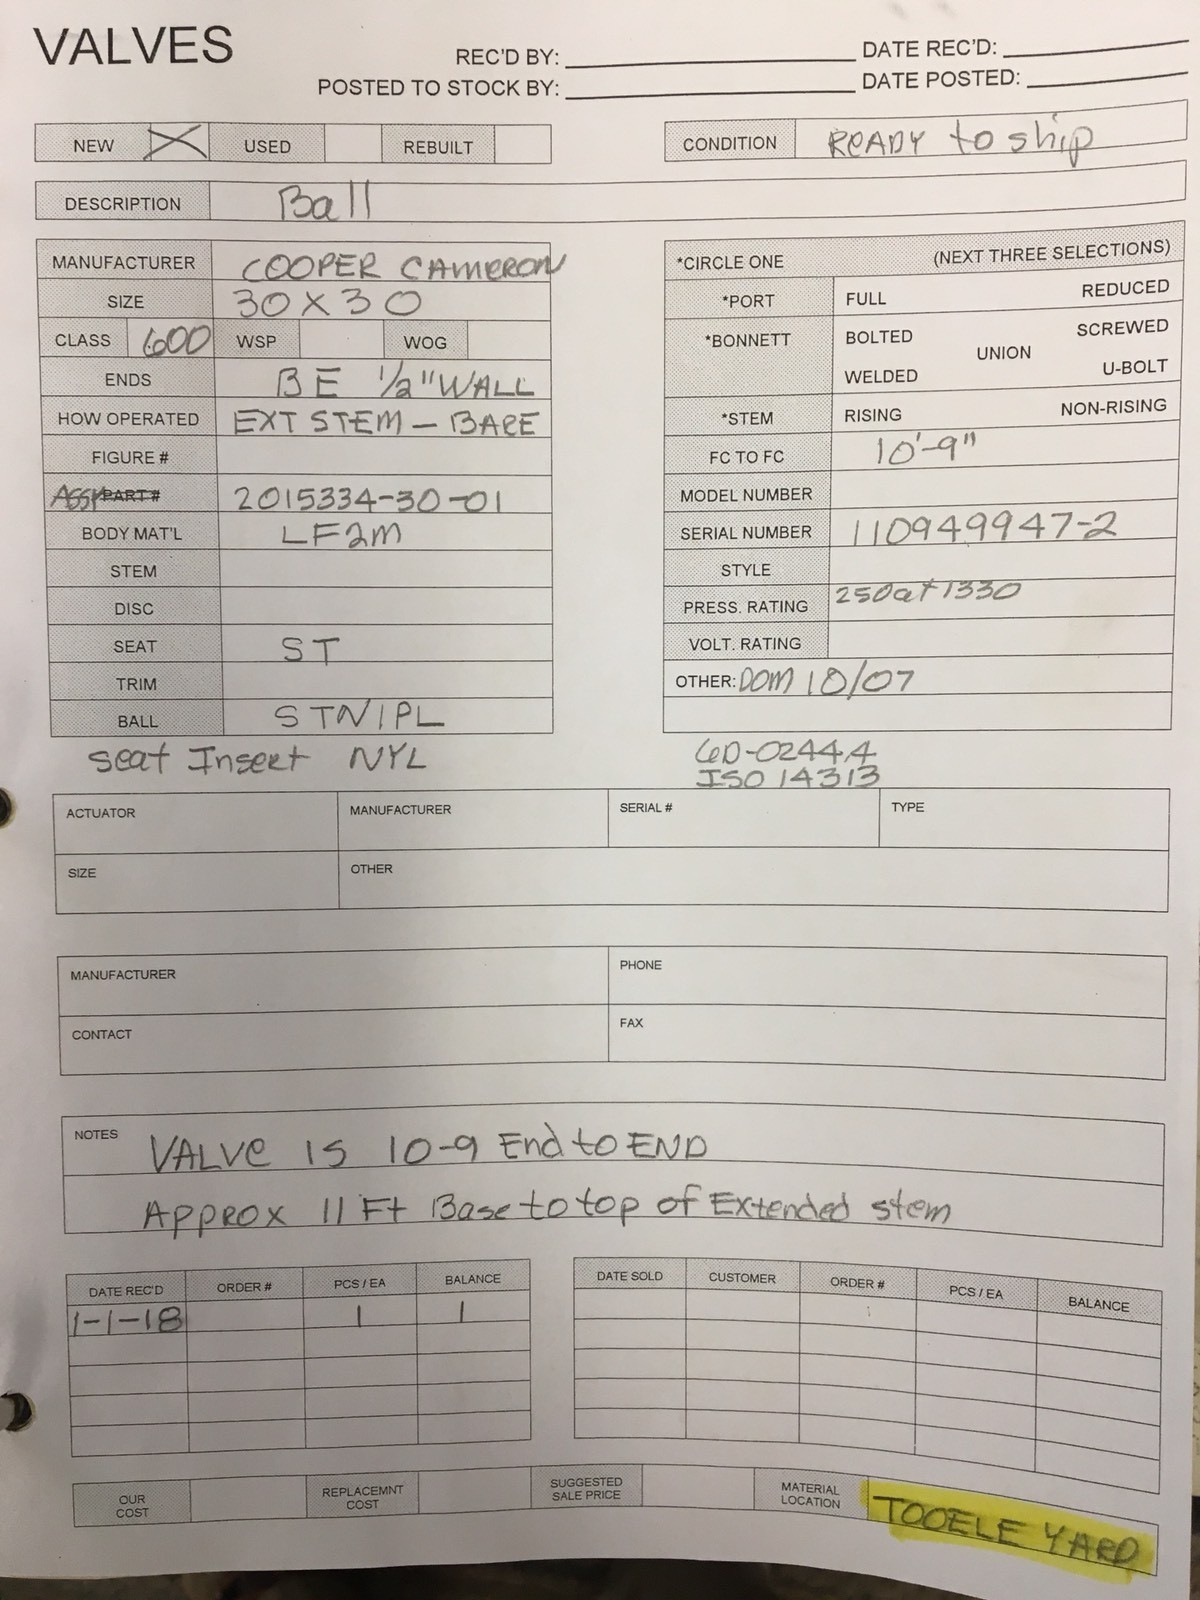 VALVES
REC'D BY: DATE REC'D:
POSTED TO STOCK BY: DATE POSTED:
NEW X USED REBUILT
CONDITION READY to ship
DESCRIPTION Ball
MANUFACTURER COOPER CAMERON
SIZE 30 X 30
CLASS 600 WSP WOG
ENDS BE 1/2" WALL
HOW OPERATED EXT STEM - BARE
FIGURE #
ASSY PART # 2015334-30-01
BODY MAT'L LF2M
STEM
DISC
SEAT ST
TRIM
BALL STN/PL
Seat Insert NYL
*CIRCLE ONE (NEXT THREE SELECTIONS)
*PORT FULL REDUCED
*BONNETT BOLTED SCREWED
UNION
WELDED U-BOLT
*STEM RISING NON-RISING
FC TO FC 10'-9"
MODEL NUMBER
SERIAL NUMBER 110949947-2
STYLE
PRESS. RATING 250at 1330
VOLT. RATING
OTHER: DOM 10/07
6D-0244.4
ISO 14313
ACTUATOR MANUFACTURER SERIAL # TYPE
SIZE OTHER
MANUFACTURER PHONE
CONTACT FAX
NOTES VALVE IS 10-9 End to END
Approx 11 Ft Base to top of Extended stem
DATE REC'D ORDER # PCS / EA BALANCE
1-1-18 1 1
DATE SOLD CUSTOMER ORDER # PCS / EA BALANCE
OUR COST REPLACEMNT COST SUGGESTED SALE PRICE MATERIAL LOCATION TOOELE YARD